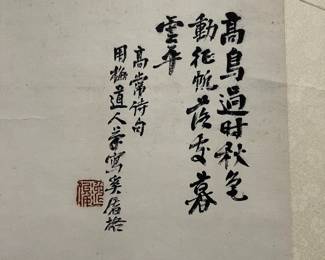 高鳥過时秋色
動征帆落處暮
雲平
高常侍句
用梅道人筆寫奚